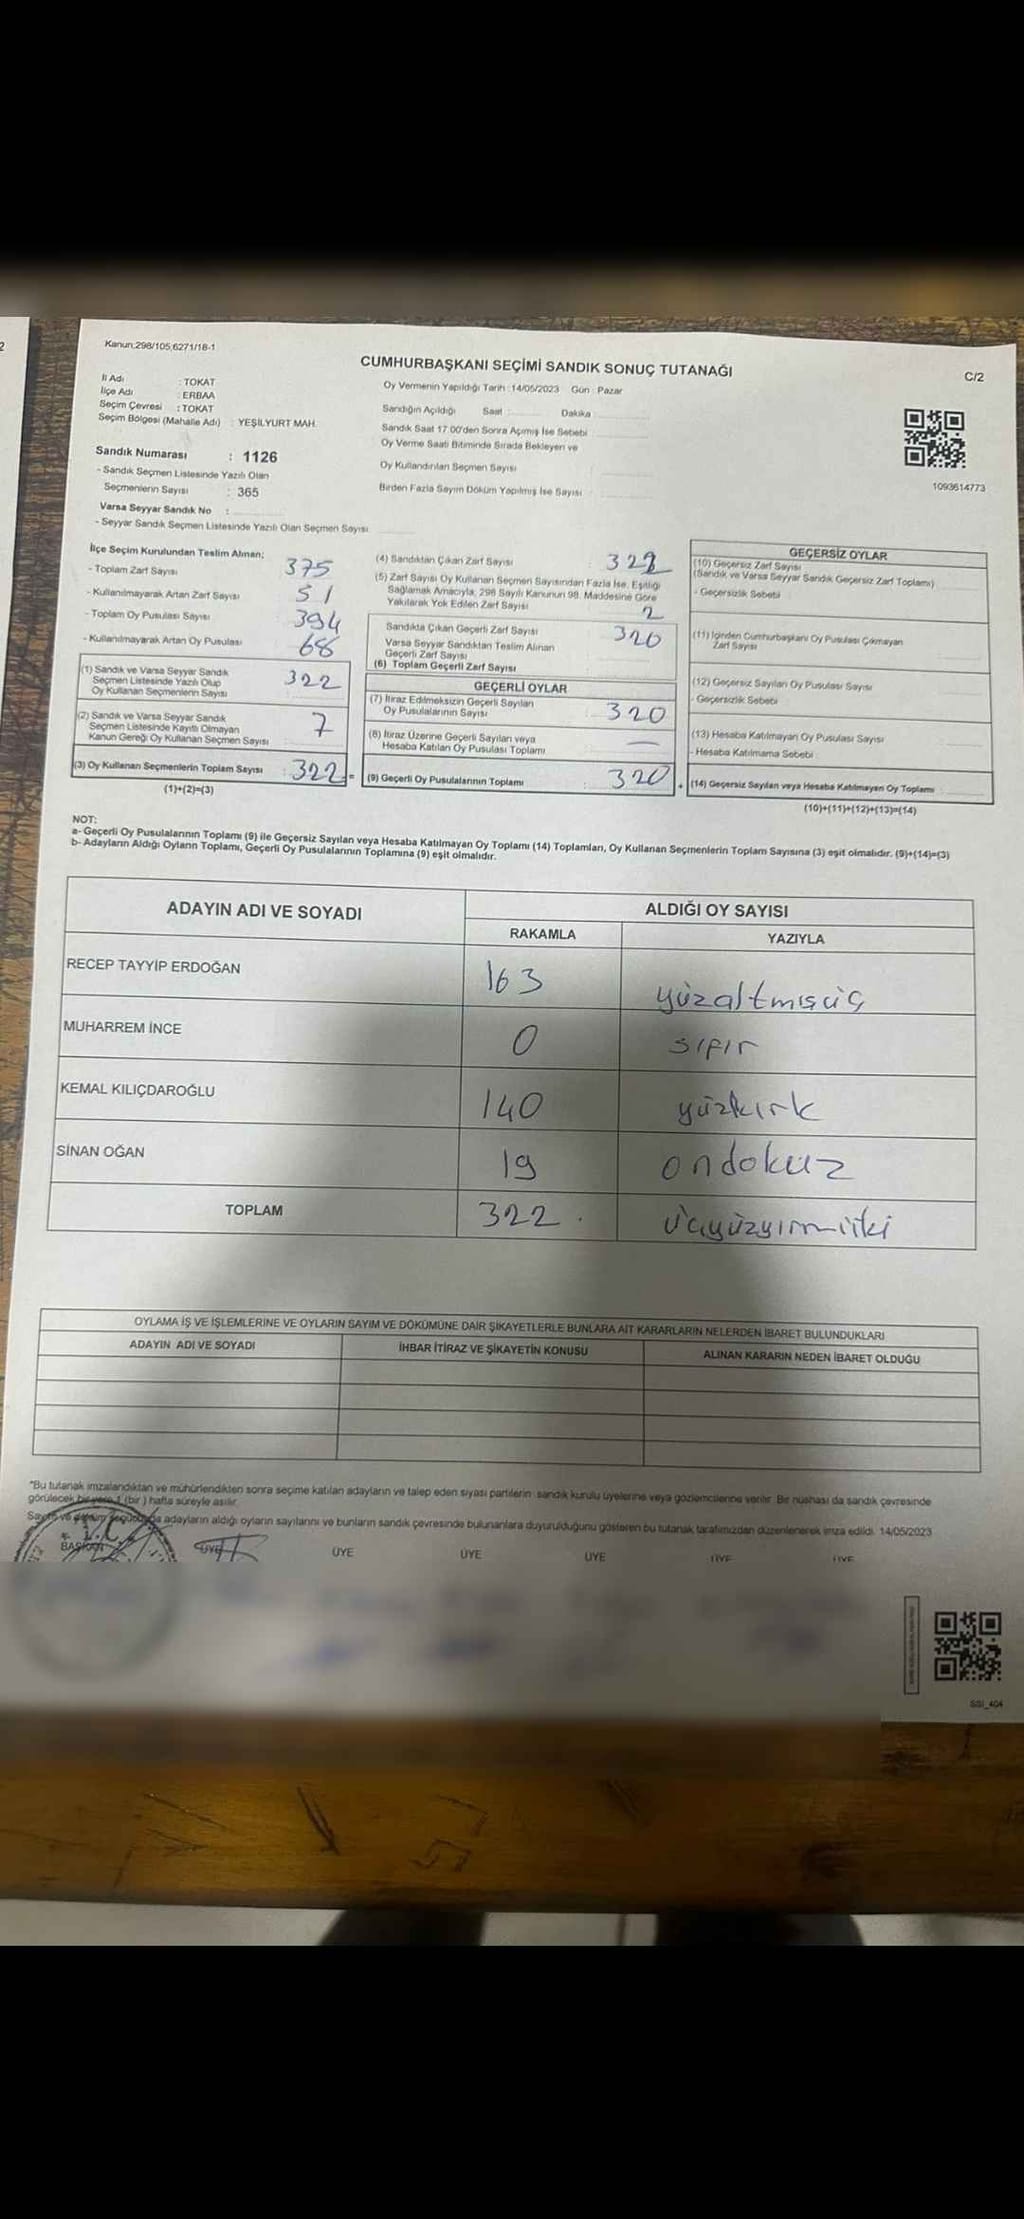 2
Kanun:298/105,6271/18-1
CUMHURBAŞKANI SEÇİMİ SANDIK SONUÇ TUTANAĞI
C/2
İl Adı : TOKAT
İlçe Adı : ERBAA
Seçim Çevresi : TOKAT
Seçim Bölgesi (Mahalle Adı) : YEŞİLYURT MAH.
Oy Vermenin Yapıldığı Tarih :14/05/2023 Gün : Pazar
Sandığın Açıldığı Saat : Dakika
Sandık Saat 17.00'den Sonra Açımış İse Sebebi
Oy Verme Saati Bitiminde Sırada Bekleyen ve
Oy Kullandırılan Seçmen Sayısı
Birden Fazla Sayım Döküm Yapılmış İse Sayısı :
1093614773
Sandık Numarası : 1126
- Sandık Seçmen Listesinde Yazılı Olan
Seçmenlerin Sayısı : 365
Varsa Seyyar Sandık No :
- Seyyar Sandık Seçmen Listesinde Yazılı Olan Seçmen Sayısı
İlçe Seçim Kurulundan Teslim Alınan;
- Toplam Zarf Sayısı 375
- Kullanılmayarak Artan Zarf Sayısı 51
- Toplam Oy Pusulası Sayısı 394
- Kullanılmayarak Artan Oy Pusulası 68
(1) Sandık ve Varsa Seyyar Sandık
Seçmen Listesinde Yazılı Olup
Oy Kullanan Seçmenlerin Sayısı 322
(2) Sandık ve Varsa Seyyar Sandık
Seçmen Listesinde Kayıtlı Olmayan
Kanun Gereği Oy Kullanan Seçmen Sayısı 7
(3) Oy Kullanan Seçmenlerin Toplam Sayısı : 322 =
(1)+(2)=(3)
(4) Sandıktan Çıkan Zarf Sayısı : 322
(5) Zarf Sayısı Oy Kullanan Seçmen Sayısından Fazla İse, Eşitliği
Sağlamak Amacıyla, 298 Sayılı Kanunun 98. Maddesine Göre
Yakılarak Yok Edilen Zarf Sayısı 2
Sandıkta Çıkan Geçerli Zarf Sayısı 320
Varsa Seyyar Sandıktan Teslim Alınan
Geçerli Zarf Sayısı
(6) Toplam Geçerli Zarf Sayısı
GEÇERLİ OYLAR
(7) İtiraz Edilmeksizin Geçerli Sayılan
Oy Pusulalarının Sayısı 320
(8) İtiraz Üzerine Geçerli Sayılan veya
Hesaba Katılan Oy Pusulası Toplamı —
(9) Geçerli Oy Pusulalarının Toplamı : 320 +
GEÇERSİZ OYLAR
(10) Geçersiz Zarf Sayısı
(Sandık ve Varsa Seyyar Sandık Geçersiz Zarf Toplamı)
- Geçersizlik Sebebi
(11) İçinden Cumhurbaşkanı Oy Pusulası Çıkmayan
Zarf Sayısı
(12) Geçersiz Sayılan Oy Pusulası Sayısı
- Geçersizlik Sebebi
(13) Hesaba Katılmayan Oy Pusulası Sayısı
- Hesaba Katılmama Sebebi
(14) Geçersiz Sayılan veya Hesaba Katılmayan Oy Toplamı
(10)+(11)+(12)+(13)=(14)
NOT:
a- Geçerli Oy Pusulalarının Toplamı (9) ile Geçersiz Sayılan veya Hesaba Katılmayan Oy Toplamı (14) Toplamları, Oy Kullanan Seçmenlerin Toplam Sayısına (3) eşit olmalıdır. (9)+(14)=(3)
b- Adayların Aldığı Oyların Toplamı, Geçerli Oy Pusulalarının Toplamına (9) eşit olmalıdır.
ADAYIN ADI VE SOYADI
ALDIĞI OY SAYISI
RAKAMLA
YAZIYLA
RECEP TAYYİP ERDOĞAN 163 yüzaltmışüç
MUHARREM İNCE 0 sıfır
KEMAL KILIÇDAROĞLU 140 yüzkırk
SİNAN OĞAN 19 ondokuz
TOPLAM 322 . üçyüzyirmiiki
OYLAMA İŞ VE İŞLEMLERİNE VE OYLARIN SAYIM VE DÖKÜMÜNE DAİR ŞİKAYETLERLE BUNLARA AİT KARARLARIN NELERDEN İBARET BULUNDUKLARI
ADAYIN ADI VE SOYADI
İHBAR İTİRAZ VE ŞİKAYETİN KONUSU
ALINAN KARARIN NEDEN İBARET OLDUĞU
"Bu tutanak imzalandıktan ve mühürlendikten sonra seçime katılan adayların ve talep eden siyasi partilerin sandık kurulu üyelerine veya gözlemcilerine verilir. Bir nüshası da sandık çevresinde
görülecek bir yere 1 (bir ) hafta süreyle asılır.
Sayım ve döküm adayların aldığı oyların sayılarını ve bunların sandık çevresinde bulunanlara duyurulduğunu gösteren bu tutanak tarafımızdan düzenlenerek imza edildi. 14/05/2023
BAŞKAN ÜYE ÜYE ÜYE ÜYE ÜYE ÜYE
SSI_404